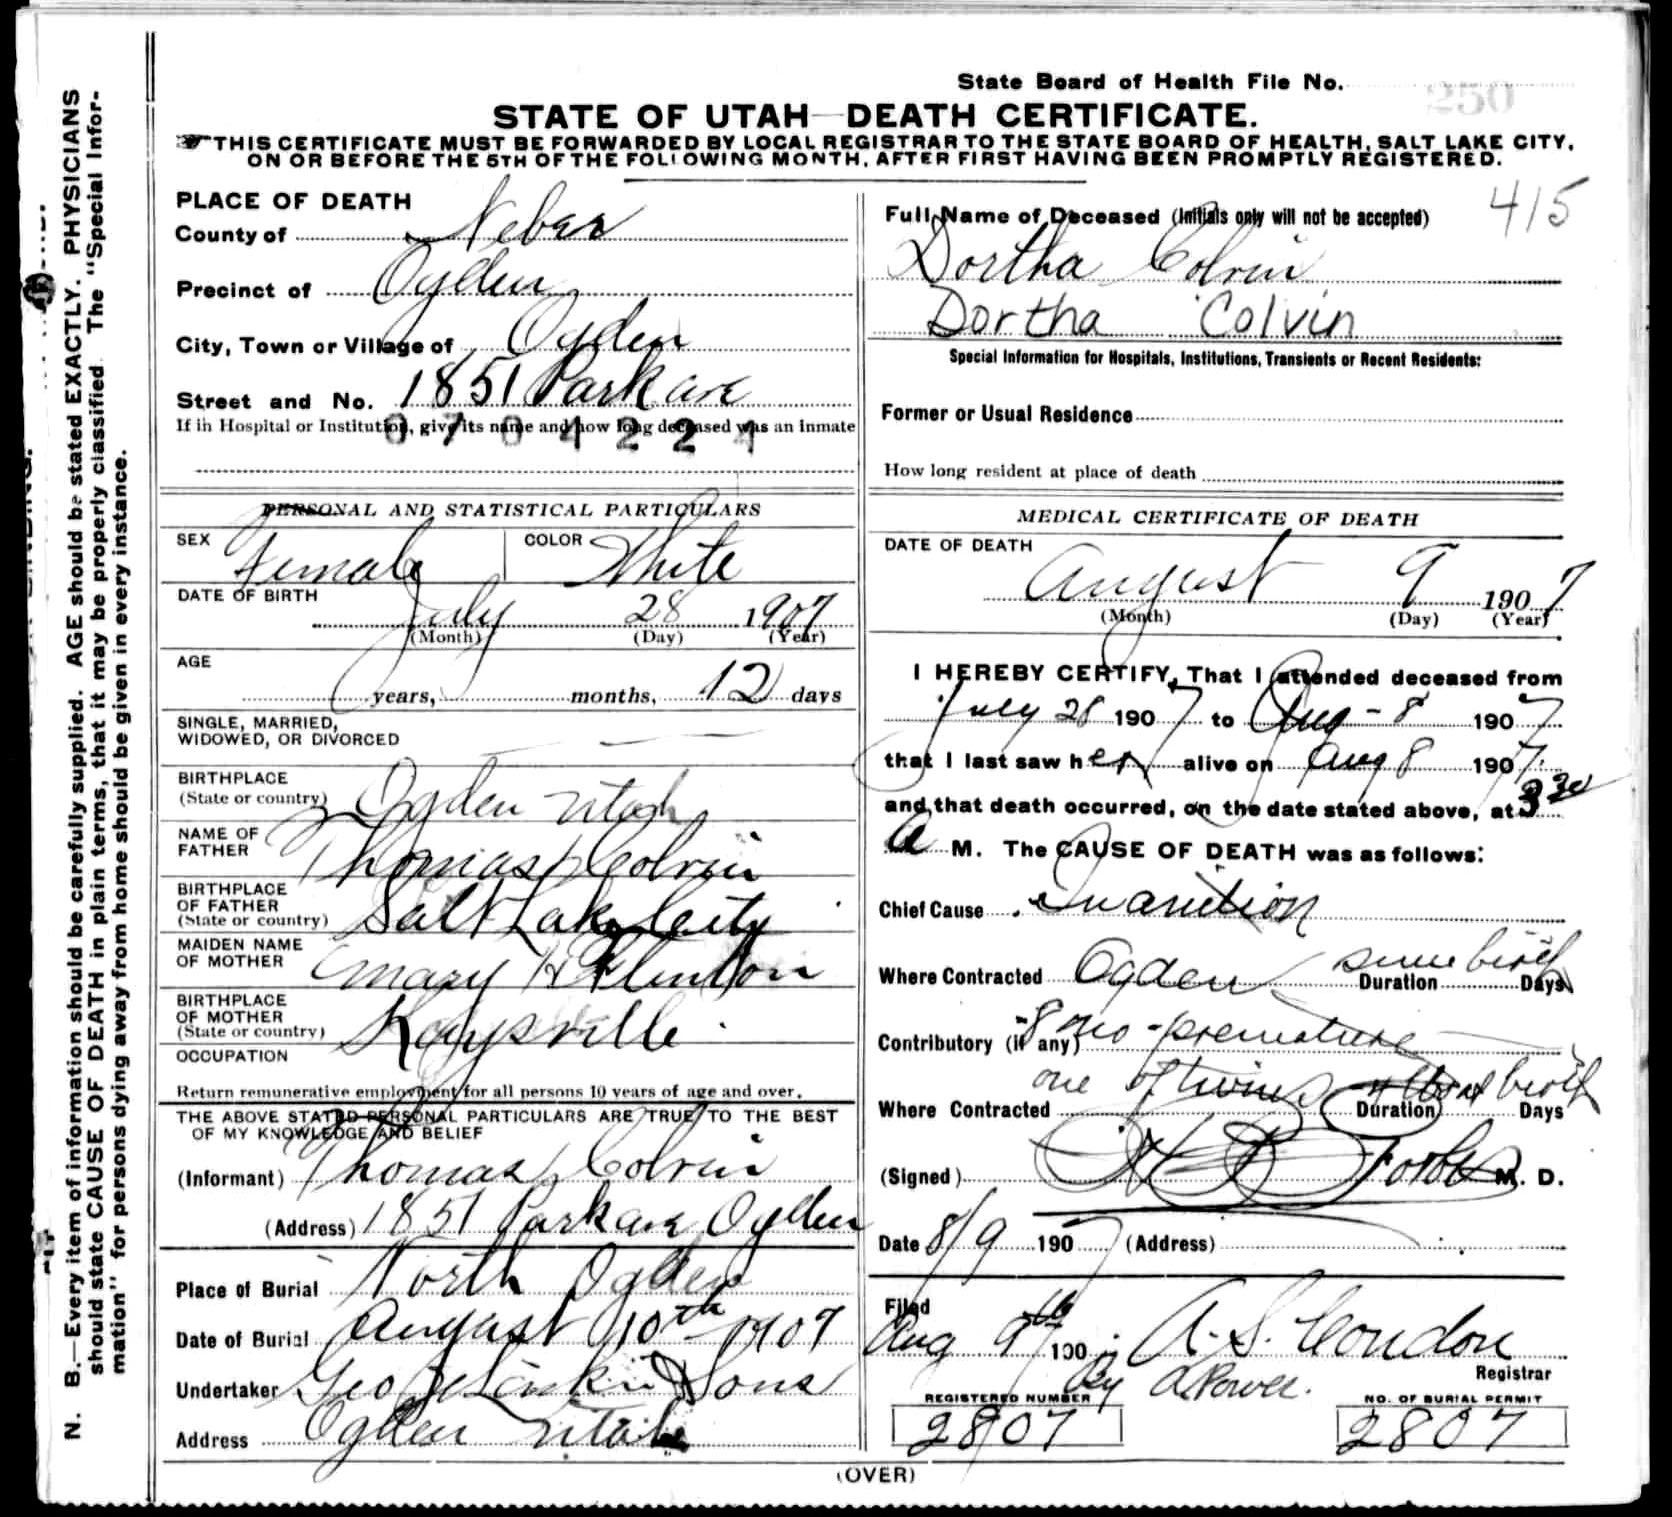 State Board of Health File No. 250
STATE OF UTAH—DEATH CERTIFICATE.
THIS CERTIFICATE MUST BE FORWARDED BY LOCAL REGISTRAR TO THE STATE BOARD OF HEALTH, SALT LAKE CITY,
ON OR BEFORE THE 5TH OF THE FOLLOWING MONTH, AFTER FIRST HAVING BEEN PROMPTLY REGISTERED.
N. B.—Every item of information should be carefully supplied. AGE should be stated EXACTLY. PHYSICIANS
should state CAUSE OF DEATH in plain terms, that it may be properly classified. The "Special Infor-
mation" for persons dying away from home should be given in every instance.
PLACE OF DEATH
County of Weber
Precinct of Ogden
City, Town or Village of Ogden
Street and No. 1851 Park ave
If in Hospital or Institution, give its name and how long deceased was an inmate
PERSONAL AND STATISTICAL PARTICULARS
SEX Female COLOR White
DATE OF BIRTH
July 28 1907
(Month) (Day) (Year)
AGE
years, months, 12 days
SINGLE, MARRIED,
WIDOWED, OR DIVORCED
BIRTHPLACE
(State or country) Ogden Utah
NAME OF
FATHER Thomas Colvin
BIRTHPLACE
OF FATHER
(State or country) Salt Lake City
MAIDEN NAME
OF MOTHER Mary H Flinton
BIRTHPLACE
OF MOTHER
(State or country) Kaysville
OCCUPATION
Return remunerative employment for all persons 10 years of age and over.
THE ABOVE STATED PERSONAL PARTICULARS ARE TRUE TO THE BEST
OF MY KNOWLEDGE AND BELIEF
(Informant) Thomas Colvin
(Address) 1851 Park ave Ogden
Place of Burial North Ogden
Date of Burial August 10th 1907
Undertaker Geo Larkin & Sons
Address Ogden Utah
415
Full Name of Deceased (Initials only will not be accepted)
Dortha Colvin
Dortha Colvin
Special Information for Hospitals, Institutions, Transients or Recent Residents:
Former or Usual Residence
How long resident at place of death
MEDICAL CERTIFICATE OF DEATH
DATE OF DEATH
August 9 1907
(Month) (Day) (Year)
I HEREBY CERTIFY, That I attended deceased from
July 28 1907 to Aug - 8 1907
that I last saw her alive on Aug 8 1907
and that death occurred, on the date stated above, at 3 30
A M. The CAUSE OF DEATH was as follows:
Chief Cause Inanition
Where Contracted Ogden Duration since birth Days
Contributory (if any) 8 mo - premature
one of twins birth
Where Contracted Duration Days
(Signed) Forbes M. D.
Date 8/9 1907 (Address)
Filed
Aug 9th 190 A. S. Condon
Registrar
By A Power.
REGISTERED NUMBER NO. OF BURIAL PERMIT
2807 2807
(OVER)